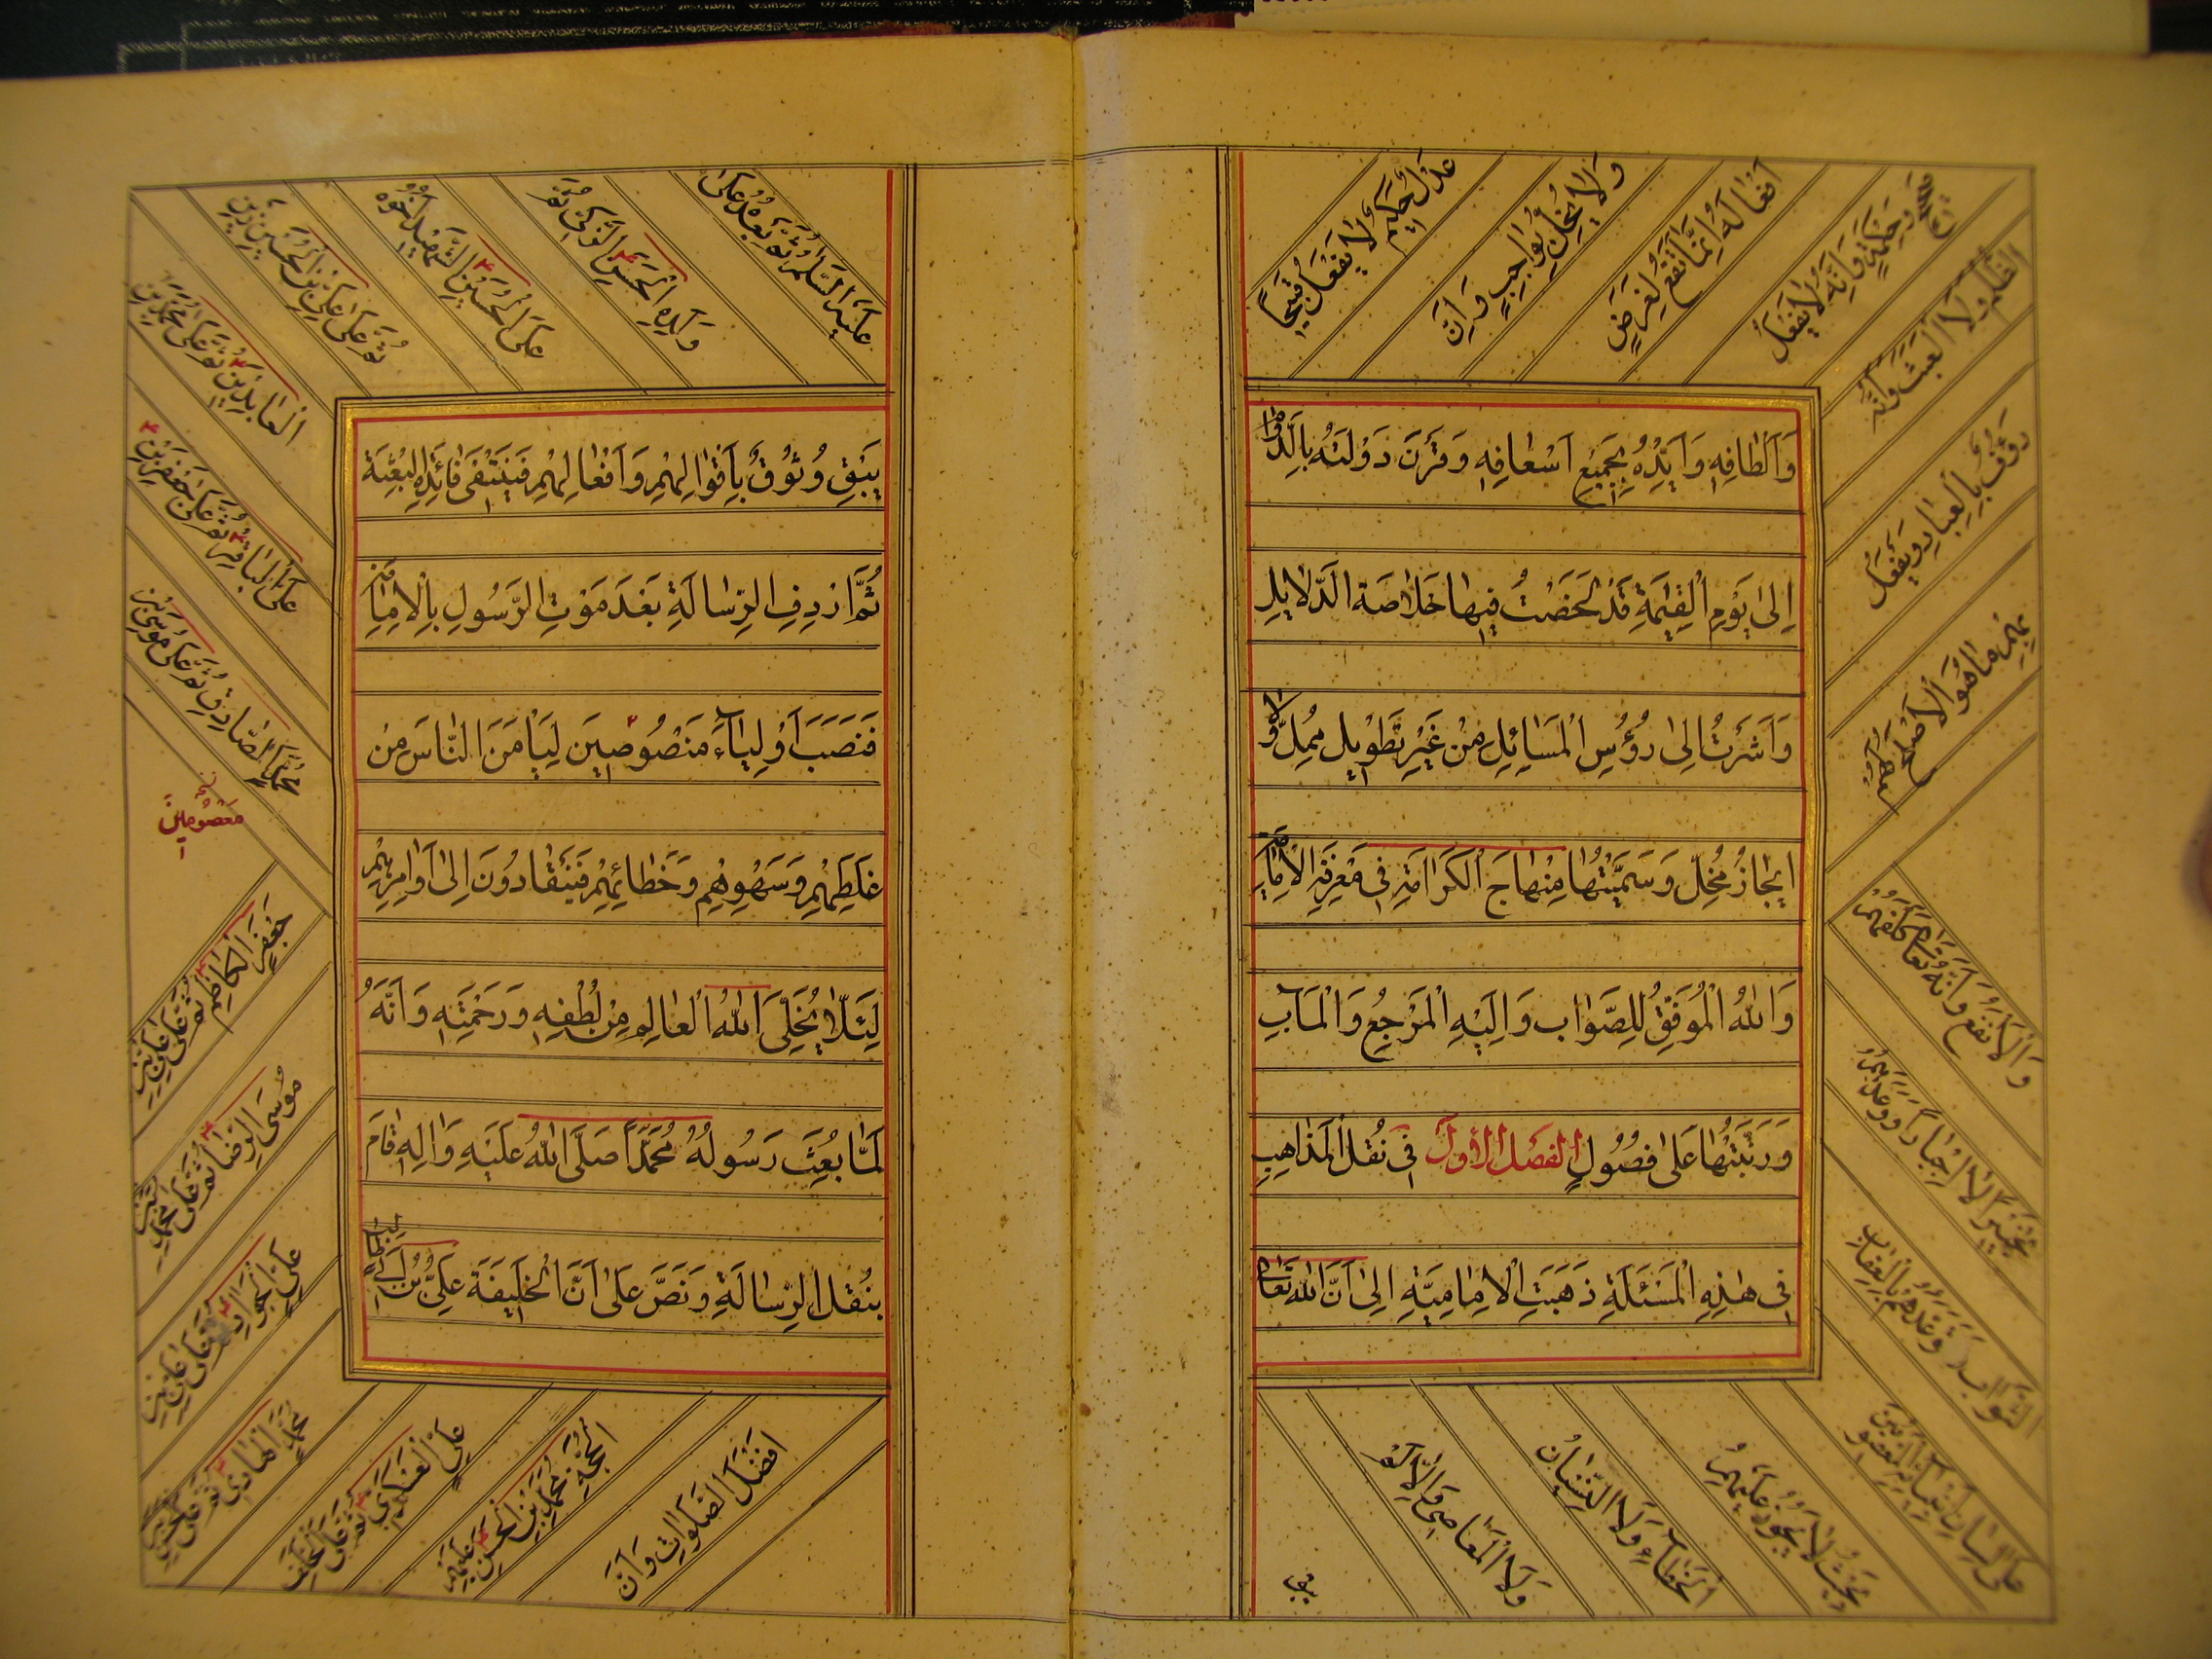 وَاَلْطَافِهِ وَاَيَّدَهُ بِجَمِيْعِ اَسْعَافِهِ وَقَرَنَ دَوْلَتَهُ بِالدَّوَامِ
اِلىٰ يَوْمِ الْقِيٰمَةِ قَدْ لَخَصْتُ فِيهَا خُلَاصَةَ الدَّلَايِلِ
وَاَشَرْتُ اِلىٰ رُؤُسِ الْمَسَائِلِ مِنْ غَيْرِ تَطْوِيلٍ مُمِلٍّ وَلَا
اِيْجَازٍ مُخِلٍّ وَسَمَّيْتُهَا مِنْهَاجَ الْكَرَامَةِ فِي مَعْرِفَةِ الْاِمَامَةِ
وَاللهُ الْمُوَفِّقُ لِلصَّوَابِ وَاِلَيْهِ الْمَرْجِعُ وَالْمَآبِ
وَرَتَّبْتُهَا عَلىٰ فُصُولٍ الفصل الأول فِي نَقْلِ الْمَذَاهِبِ
فِي هٰذِهِ الْمَسْئَلَةِ ذَهَبَتِ الْاِمَامِيَّةِ اِلىٰ اَنَّ اللهَ تَعَالىٰ
عَدْلٌ حَكِيْمٌ وَلَا يَفْعَلُ قَبِيْحًا
وَلَا يُخِلُّ بِوَاجِبٍ وَاَنَّ
اَفْعَالَهُ اِنَّمَا تَقَعُ لِغَرَضٍ
صَحِيْحٍ وَحِكْمَةٍ فَاِنَّهُ لَا يَفْعَلُ
الظُّلْمَ وَلَا الْعَبَثَ وَاَنَّهُ
رَؤُفٌ بِالْعِبَادِ وَيَفْعَلُ
بِهِمْ مَا هُوَ الْاَصْلَحُ لَهُمْ
وَالْاَنْفَعُ وَاَنَّهُ تَعَالىٰ كَلَّفَهُمْ
تَخْيِيْرًا لَا اِجْبَارًا وَوَعَدَهُمْ
الثَّوَابَ وَتَوَعَّدَهُمْ بِالْعِقَابِ
عَلىٰ لِسَانِ اَنْبِيَائِهِ الْمَعْصُوْمِيْنَ
بِحَيْثُ لَا يَجُوْزُ عَلَيْهِمُ
الْخَطَاءُ وَلَا النِّسْيَانُ
وَلَا الْمَعَاصِي وَاِلَّا لَمْ
يبق
يَبْقَ وُثُوْقٌ بِاَقْوَالِهِمْ وَاَفْعَالِهِمْ فَيَنْتَفِى فَائِدَةُ الْبِعْثَةِ
ثُمَّ اَرْدَفَ الرِّسَالَةِ بَعْدَ مَوْتِ الرَّسُولِ بِالْاِمَامَةِ
فَنَصَبَ اَوْلِيَاءَ مَنْصُوْصِيْنَ لِيَأْمَنَ النَّاسَ مِنْ
غَلَطِهِمْ وَسَهْوِهِمْ وَخَطَائِهِمْ فَيَنْقَادُوْنَ اِلىٰ اَوَامِرِهِمْ
لِئَلَّا يُخَلِّيَ اللهُ الْعَالَمِ مِنْ لُطْفِهِ وَرَحْمَتِهِ وَاَنَّهُ
لَمَّا بُعِثَ رَسُولُهُ مُحَمَّدًا صَلَّى اللهُ عَلَيْهِ وَاٰلِهِ قَامَ
بِنَقْلِ الرِّسَالَةِ وَنَصَّ عَلىٰ اَنَّ الْخَلِيْفَةَ عَلِيُّ بْنُ اَبِي طَالِبٍ
عَلَيْهِ السَّلَامُ ثُمَّ بَعْدَهُ عَلىٰ
وَلَدِهِ الْحَسَنِ الزَّكِيِّ ثُمَّ
عَلَى الْحُسَيْنِ الشَّهِيْدِ اَخُوْهُ
ثُمَّ عَلىٰ عَلِيِّ بْنِ الْحُسَيْنِ زَيْنِ
الْعَابِدِيْنَ ثُمَّ عَلىٰ مُحَمَّدِ بْنِ
عَلِيِّ الْبَاقِرِ ثُمَّ عَلىٰ جَعْفَرِ بْنِ
مُحَمَّدٍ الصَّادِقِ ثُمَّ عَلىٰ مُوْسَى بْنِ
معصومين
جَعْفَرٍ الْكَاظِمِ ثُمَّ عَلىٰ عَلِيِّ بْنِ
مُوسَى الرِّضَا ثُمَّ عَلىٰ مُحَمَّدِ بْنِ
عَلِيٍّ الْجَوَادِ ثُمَّ عَلىٰ عَلِيِّ بْنِ
مُحَمَّدٍ الْهَادِي ثُمَّ عَلَى الْحَسَنِ بْنِ
عَلِيٍّ الْعَسْكَرِيِّ ثُمَّ عَلَى الْخَلَفِ
الْحُجَّةِ مُحَمَّدِ بْنِ الْحَسَنِ عَلَيْهِمْ
اَفْضَلُ الصَّلَوَاتِ وَاَنَّ